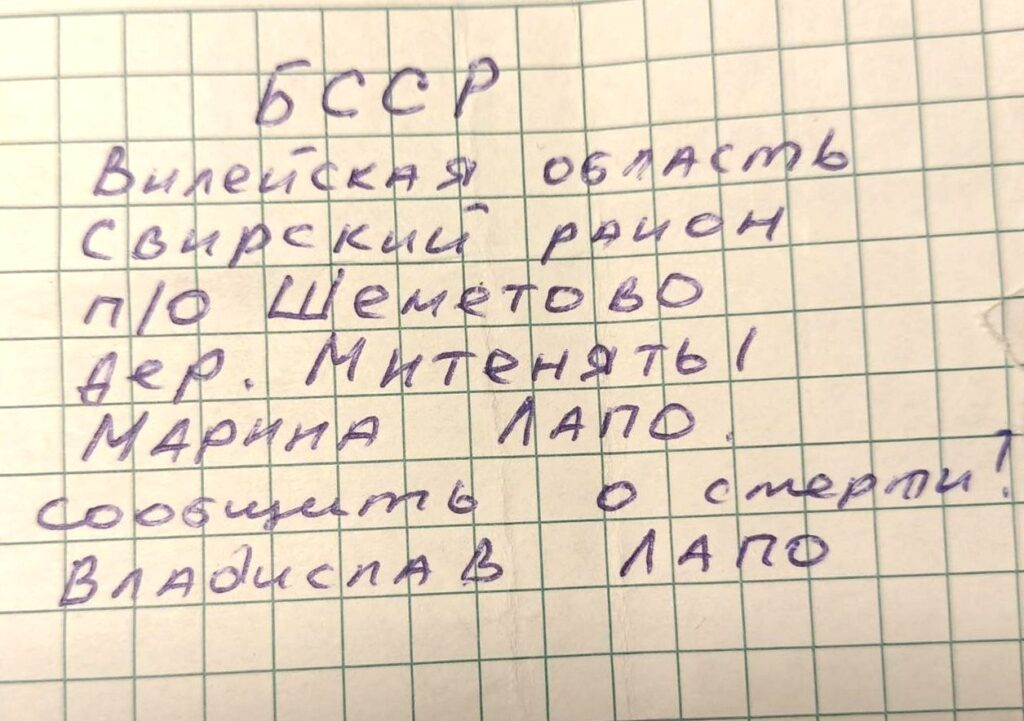 БССР
Вилейская область
Свирский район
п/о Шеметово
дер. Митеняты
Марина Лапо.
сообщить о смерти!
Владислав Лапо